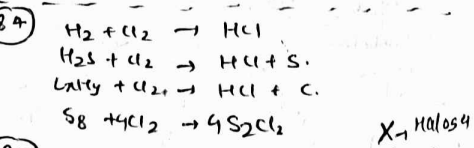 84)
H2 + Cl2 → HCl
H2S + Cl2 → HCl + S.
CxHy + Cl2 → HCl + C.
S8 + 4Cl2 → 4S2Cl2
X →